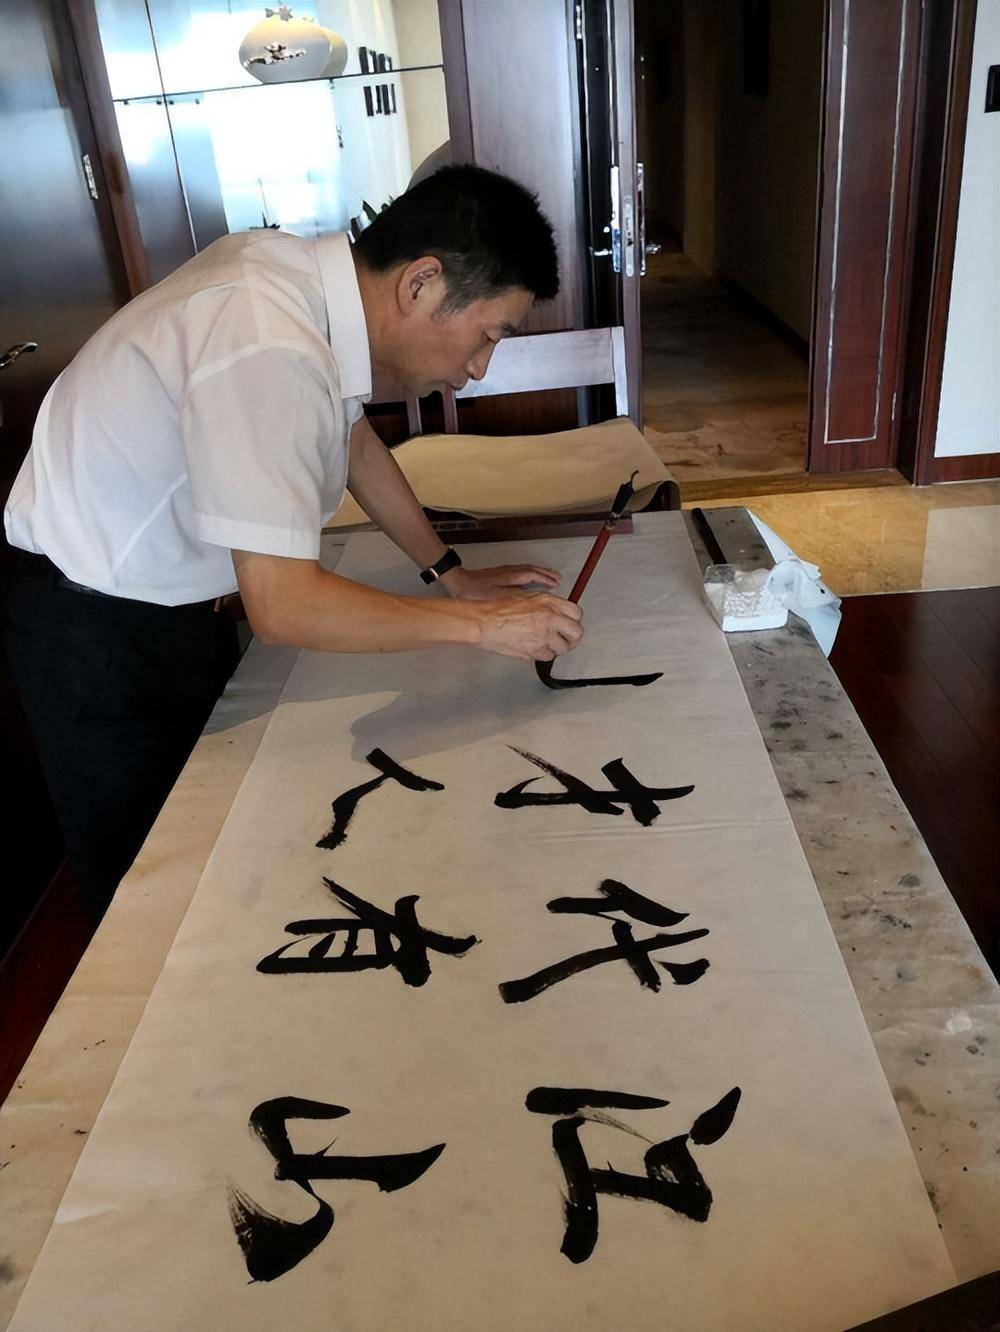 江山
代有
才人